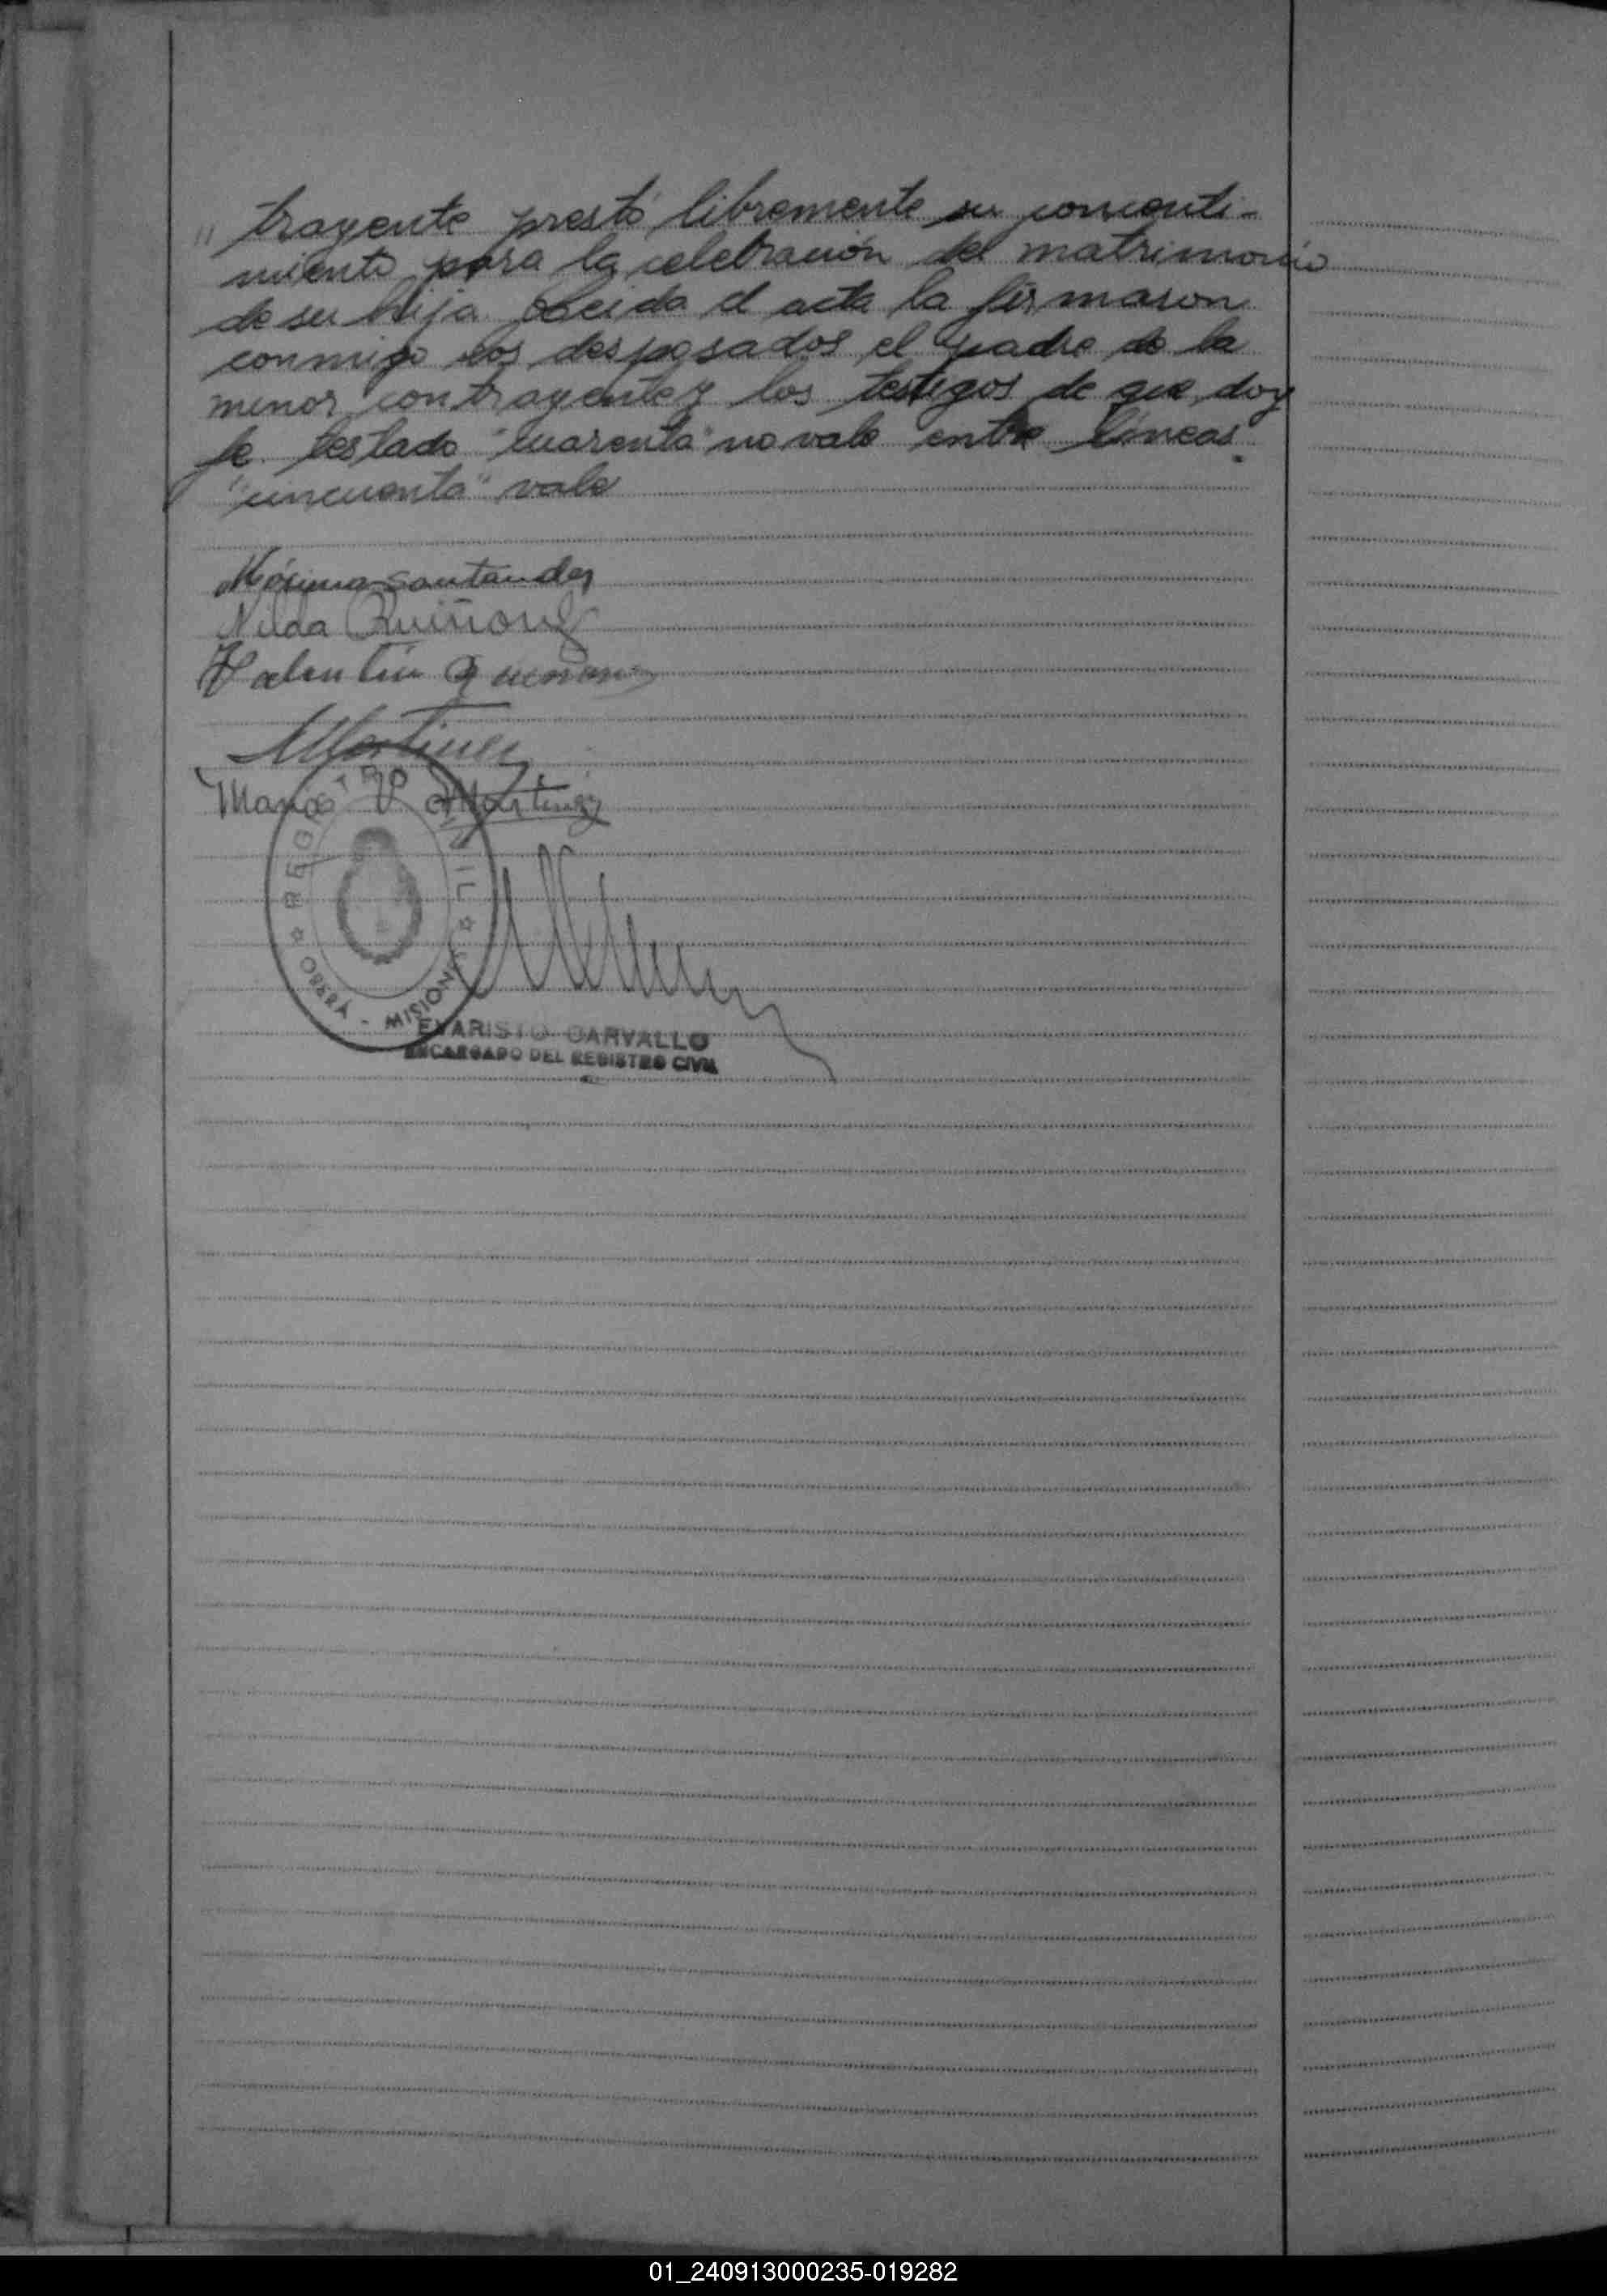 " trayente prestó libremente su consenti-
miento para la celebración del matrimonio
de su hija. Leida el acta la firmaron
conmigo los desposados el padre de la
menor contrayente y los testigos de que doy
fe. testado "cuarenta" no vale entre líneas
"cincuenta" vale
Máxima Santander
Nilda Quiñonez
Valentin Quiñonez
Martinez
Maria V. Martinez
REGISTRO CIVIL
OBERÁ - MISIONES
EVARISTO CARVALLO
ENCARGADO DEL REGISTRO CIVIL
01_240913000235-019282